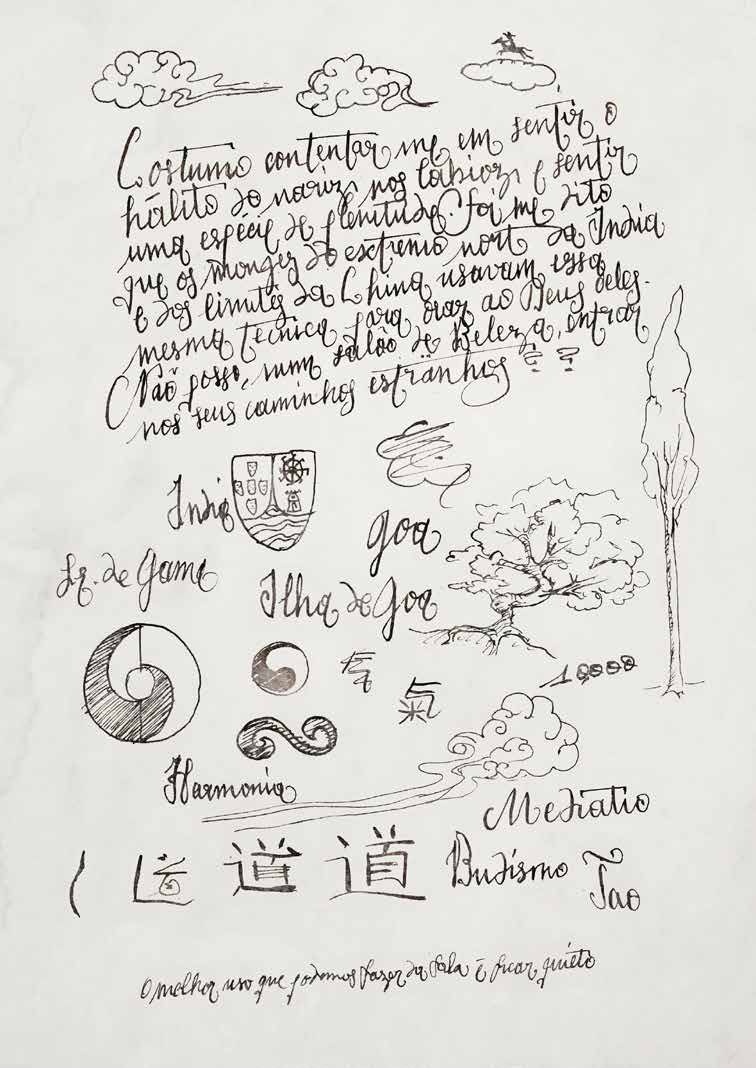 Costumo contentar me em sentir o
hálito do nariz, nos lábios, e sentir
uma espécie de plenitude. Foi me dito
que os monges do extremo nort da India
e dos limites da China usavam essa
mesma tecnica para orar ao Deus deles.
Não posso, num salão de Beleza, entrar
nos seus caminhos estranhos
India
goa
de Gama
Ilha de Goa
气
氣
10000
Harmonia
Mediatio
道 道 Budismo Tao
O melhor uso que podemos fazer da fala é ficar quieto